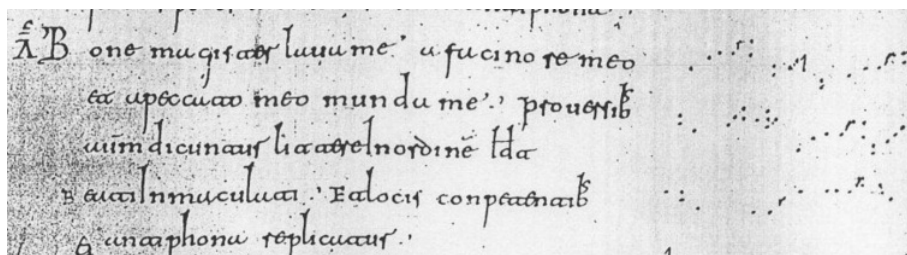 Bone magister laua me a facinore meo
et a peccato meo munda me. pro uersibꝰ
aūm dicuntur littere In ordinē
Beati Inmaculati. Et locis conpetentibꝰ
antiphona replicatur.